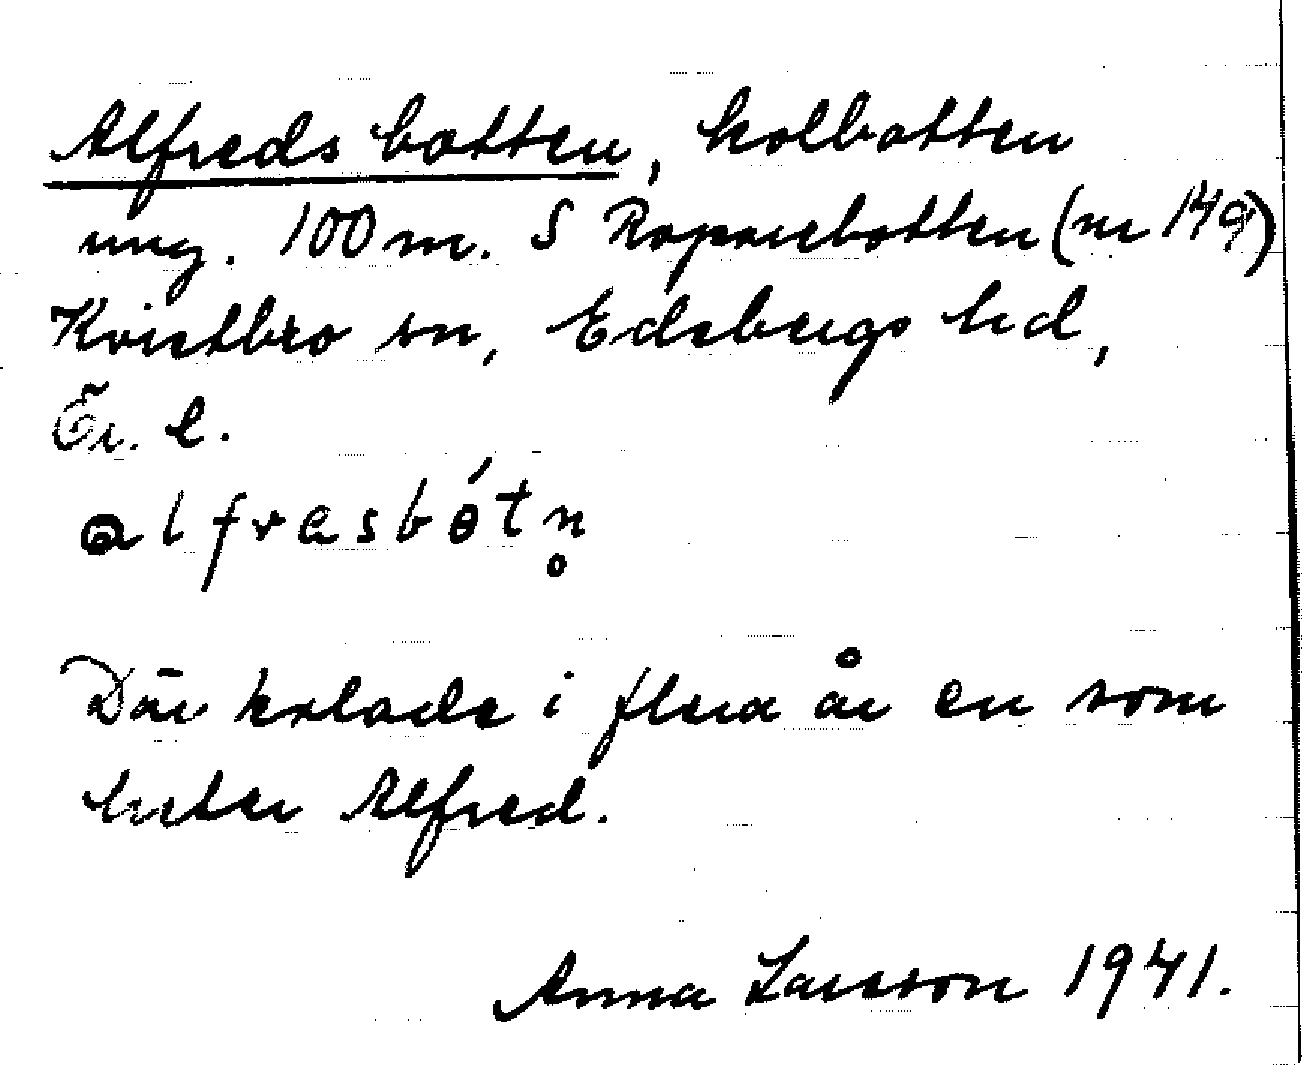 Alfredsbotten, kolbotten
ung. 100 m. S Roparebotten (nr 149)
Kvistbro sn, Edsbergs hd,
Ör. l.
alfrasbótn̥
Där kolade i flera år en som
heter Alfred.
Anna Larsson 1941.